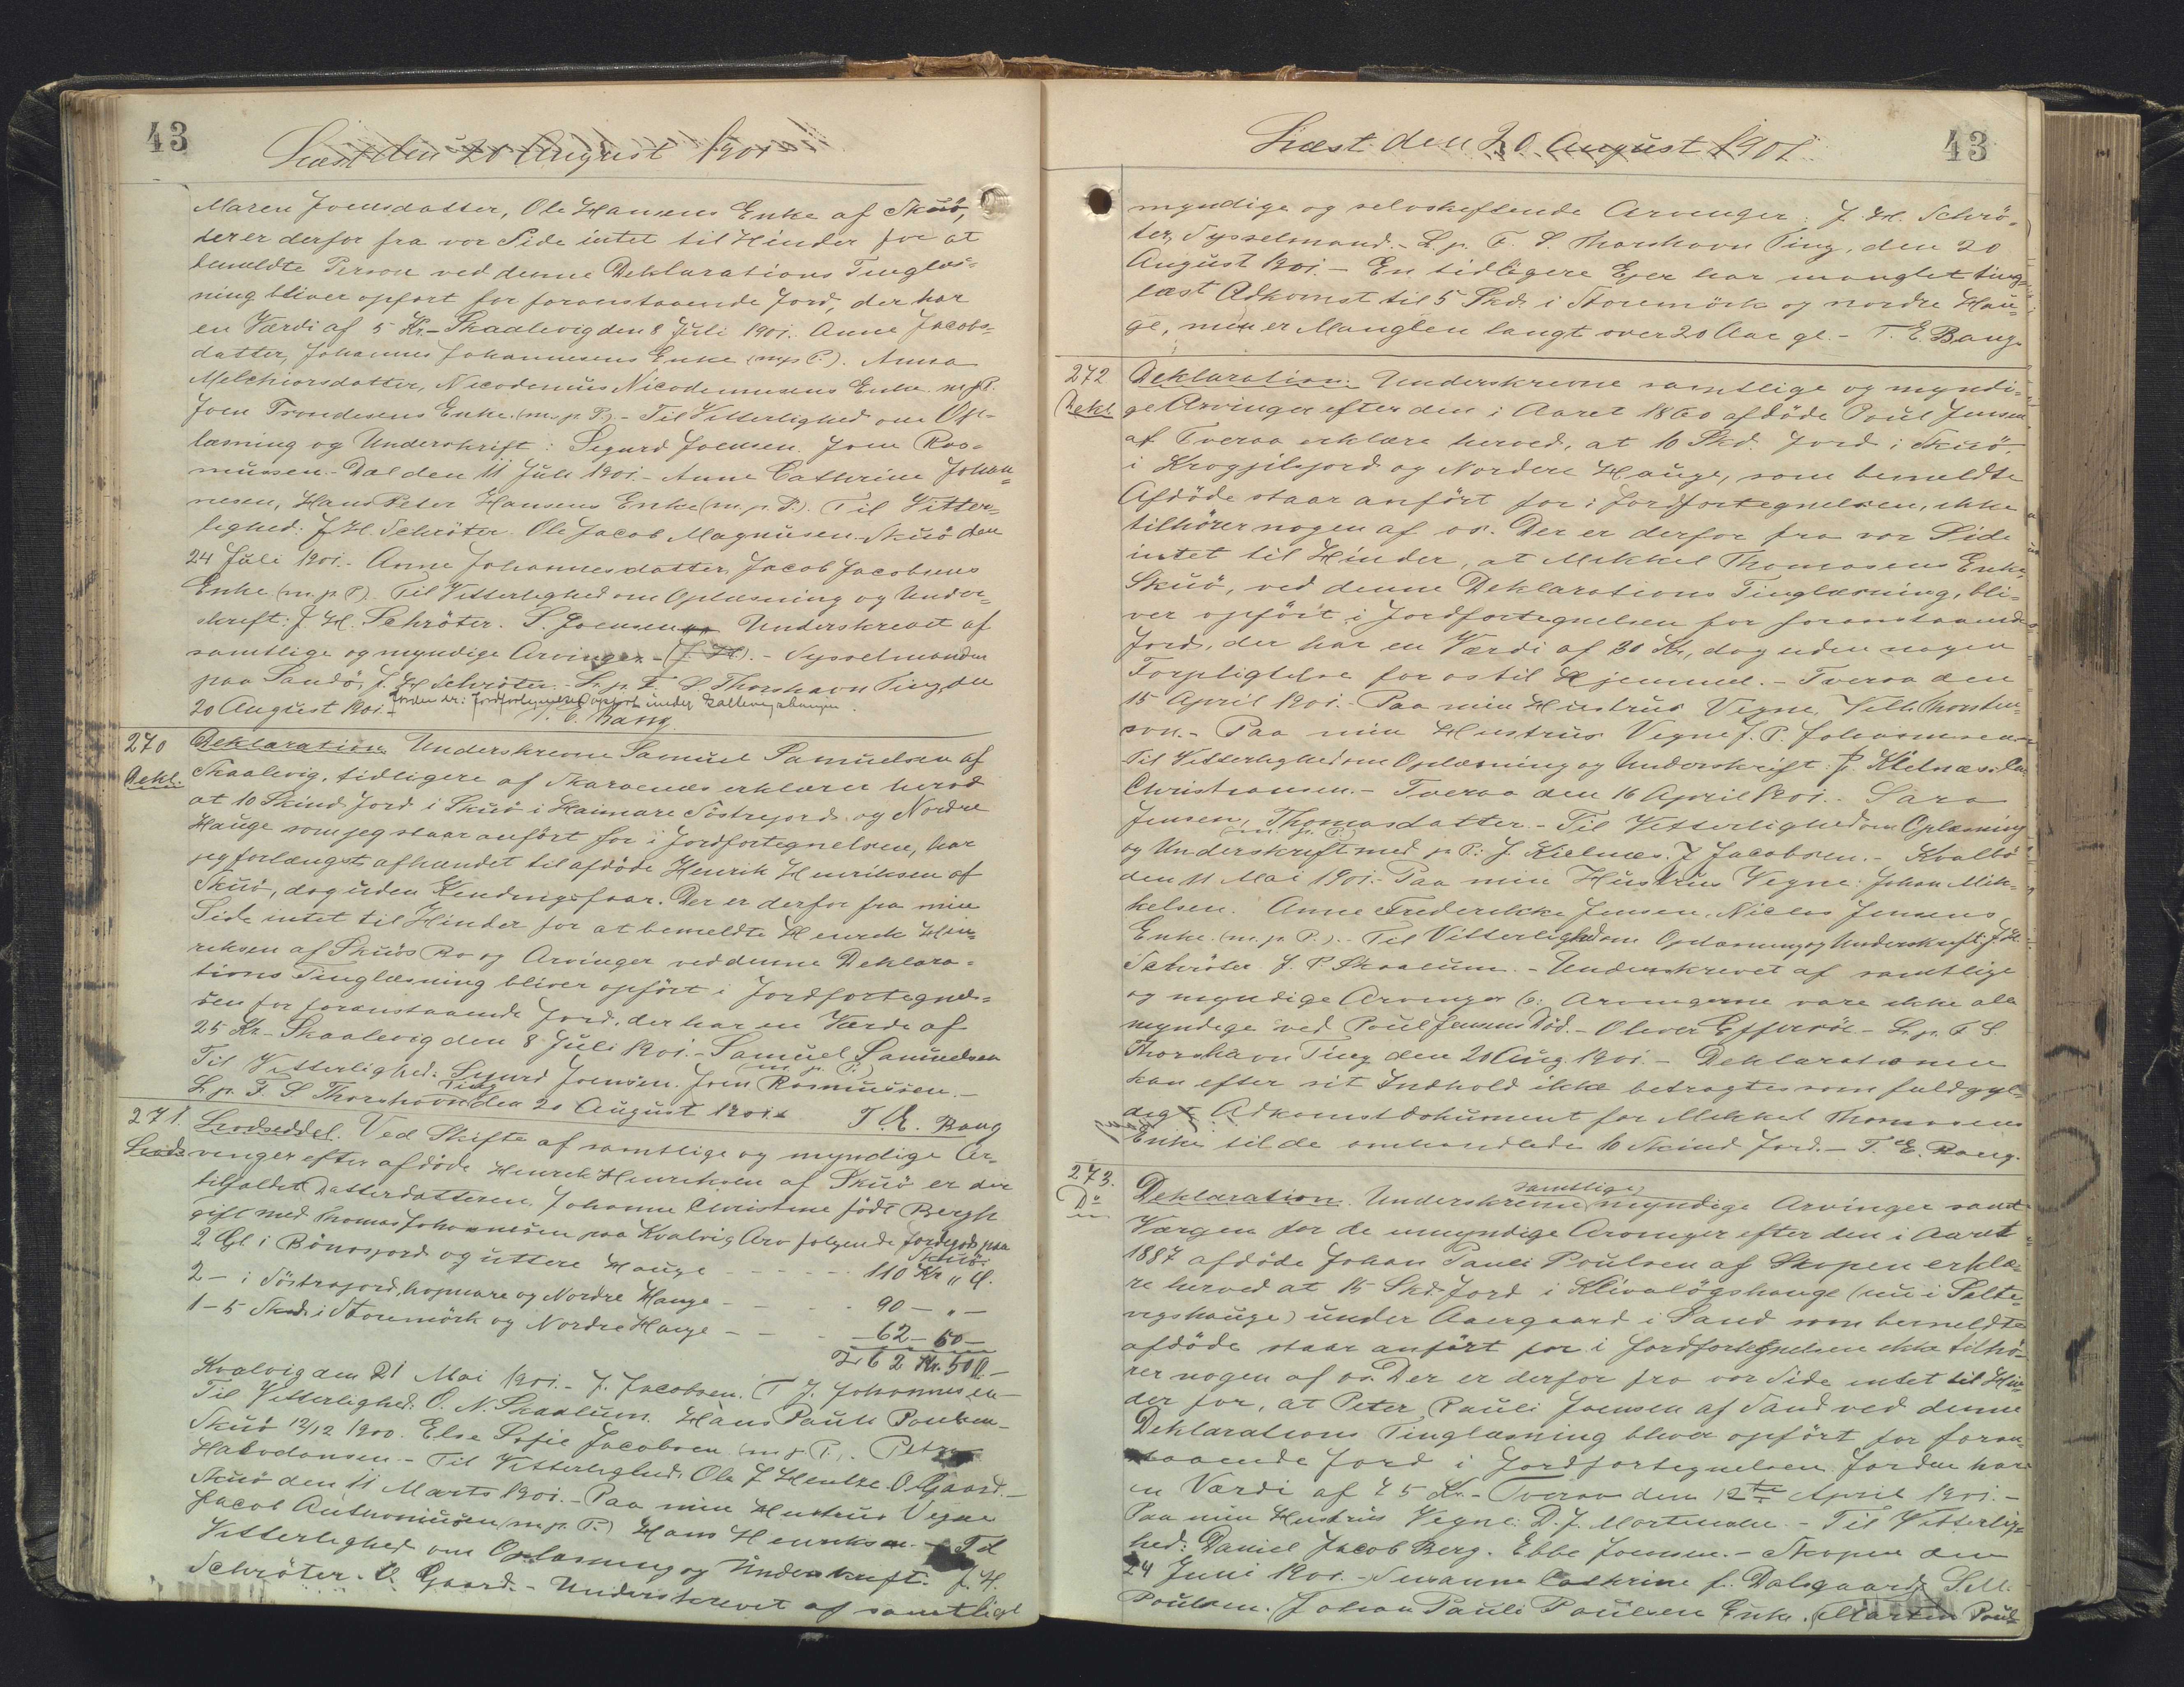 43
Læst den 20 August 1901
Maren Joensdatter, Ole Hansens Enke af Skuö,
der er derfor fra vor Side intet til Hinder for at
bemeldte Person ved denne Deklarations Tinglæs-
ning bliver opfört for foranstaaende Jord, der har
en Værdi af 5 Kr.- Skaalevig den 8 Juli 1901. Anne Jacobs-
datter, Johannes Johannesens Enke (m.p.P.). Anna
Melchiorsdatter, Nicodemus Nicodemusens Enke m.p.P.
Joen Trondesens Enke (m.p.P.)- Til Vitterlighed om Op-
læsning og Underskrift: Sigurd Joensen. Joen Ras-
mussen.- Dal den 11 Juli 1901.- Anne Cathrine Johan-
nesen, Hans Peter Hansens Enke (m.p.P.). Til Vitter-
lighed: J.H. Schröter. Ole Jacob Magnussen. Skuö den
24 Juli 1901.- Anne Johannesdatter, Jacob Jacobsens
Enke (m.p.P.). Til Vitterlighed om Oplæsning og Under-
skrift: J.H. Schröter. S. Joensen Underskrevet af
samtlige og myndige Arvinger - (J.H.).- Sysselmanden
paa Sandö, J.H. Schröter.- L.p.F.S. Thorshavn Ting, den
20 August 1901.- Jorden er i Jordfortegnelsen opfört under
T.E. Bang
270 Deklaration. Underskrevne Samuel Samuelsen af
Dekl. Skaalevig, tidligere af Skarvenæs erklærer herved
at 10 Skind Jord i Skuö i Haimare Söstrejord og Nordre
Hauge som jeg staar anfört for i Jordfortegnelsen, har
jeg forlængst afhændet til afdöde Henrik Henriksen af
Skuö, dog uden Kendingsfaar. Der er derfor fra min
Side intet til Hinder for at bemeldte Henrik Hen-
riksen af Skuös Bo og Arvinger ved denne Deklara-
tions Tinglæsning bliver opfört i Jordfortegnel-
sen for foranstaaende Jord, der har en Værdi af
25 Kr.- Skaalevig den 8 Juli 1901.- Samuel Samuelsen
(m.p.P.)
Til Vitterlighed: Sigurd Joensen. Joen Rasmussen.-
L.p.F.S. Thorshavn Ting den 20 August 1901. T.E. Bang
271. Lodseddel. Ved Skifte af samtlige og myndige Ar-
Lods. vinger efter afdöde Henrik Henriksen af Skuö er der
tilfaldet Datterdatteren Johanne Christine födt Bergh
gift med Thomas Johannesen paa Kvalvig Arv folgende Jordegods paa
Skuö:
2 Gl. i Bönosjord og uttere Hauge - - - 110 Kr. " Ø.
2 - i Söstrajord, hopmare og Nordre Hauge - - - 90 - " -
1 - 5 Skd. i Storemörk og Nordre Hauge - - - 62 - 50 -
262 Kr. 50 Ø.-
Kvalvig den 21 Mai 1901.- J. Jacobsen. T.J. Johannesen-
Til Vitterlighed: O.N. Skaalum. Hans Pauli Poulsen-
Skuö 12/12 1900. Else Sofie Jacobsen (m.p.P.). Petra
Halvdansen.- Til Vitterlighed: Ole J. Hentze. O. Gaard.-
Skuö den 11 Marts 1901.- Paa min Hustrus Vegne
Jacob Anthoniussen (m.p.P.) Hans Henriksen.- Til
Vitterlighed om Oplæsning og Underskrift: J.H.
Schröter. O. Gaard.- Underskrevet af samtlige
43
Læst den 20 August 1901
myndige og selvskiftende Arvinger: J.H. Schrö-
ter, Sysselmand.- L.p.F.S. Thorshavn Ting, den 20
August 1901.- En tidligere Ejer har manglet ting-
læst Adkomst til 5 Skd. i Storemörk og nordre Hau-
ge, men er Manglen langt over 20 Aar gl.- T.E. Bang
272 Deklaration. Underskrevne samtlige og myndi-
Dekl. ge Arvinger efter den i Aaret 1860 afdöde Poul Jensen
af Tveraa erklære herved, at 10 Skd. Jord i Skuö,
i Krogjilsjord og Nordere Hauge, som bemeldte
Afdöde staar anfört for i Jordfortegnelsen, ikke
tilhörer nogen af os. Der er derfor fra vor Side
intet til Hinder, at Mikkel Thomasens Enke,
Skuö, ved denne Deklarations Tinglæsning, bli-
ver opfört i Jordfortegnelsen for foranstaaende
Jord, der har en Værdi af 30 Kr., dog uden nogen
Forpligtelse for os til Hjemmel.- Tveraa den
15 April 1901.- Paa min Hustrus Vegne, Vilh. Thorstein-
son.- Paa min Hustrus Vegne J.P. Johannesen
Til Vitterlighed om Oplæsning og Underskrift: J. Kielnæs.
Christiansen.- Tveraa den 16 April 1901.- Sara
Jensen, Thomasdatter.- Til Vitterlighed om Oplæsning
(m.p.P.)
og Underskrift med p.P.: J. Kielnæs. J. Jacobsen.- Kvalbö
den 11 Mai 1901.- Paa min Hustrus Vegne: Johan Mik-
kelsen. Anne Frederikke Jensen, Niels Jensens
Enke (m.p.P.).- Til Vitterlighed om Oplæsning og Underskrift: J.H.
Schröter. J.P. Skaalum.- Underskrevet af samtlige
og myndige Arvinger (o: Arvingerne vare ikke alle
myndige ved Poul Jensens Död.- Oliver Effersöe.- L.p.F.S.
Thorshavn Ting den 20 Aug. 1901.- Deklarationen
kan efter sit Indhold ikke betragtes som fuldgyl-
digt Adkomstdokument for Mikkel Thomasens
Enke til de omhandlede 10 Skind Jord.- T.E. Bang.
273. Deklaration. Underskrevne samtlige myndige Arvinger samt
Do Værgen for de umyndige Arvinger efter den i Aaret
1887 afdöde Johan Pauli Poulsen af Skopen erklæ-
re herved at 15 Skd. Jord i Klivalögshauge (nu i Salte-
vigshauge) under Aaergaard i Sand som bemeldte
afdöde staar anfört for i Jordfortegnelsen ikke tilhö-
rer nogen af os. Der er derfor fra vor Side intet til Hin-
der for, at Peter Pauli Joensen af Sand ved denne
Deklarations Tinglæsning bliver opfört for foran-
staaende Jord i Jordfortegnelsen. Jorden har
en Værdi af 45 Kr.- Tveraa den 12te April 1901.-
Paa min Hustrus Vegne: D.J. Mortensen.- Til Vitterlig-
hed: Daniel Jacob Berg. Ebbe Joensen.- Skopen den
24 Juni 1901.- Susanne Cathrine f. Dalsgaard
Poulsen. Johan Pauli Poulsen Enke. Martin Poul-